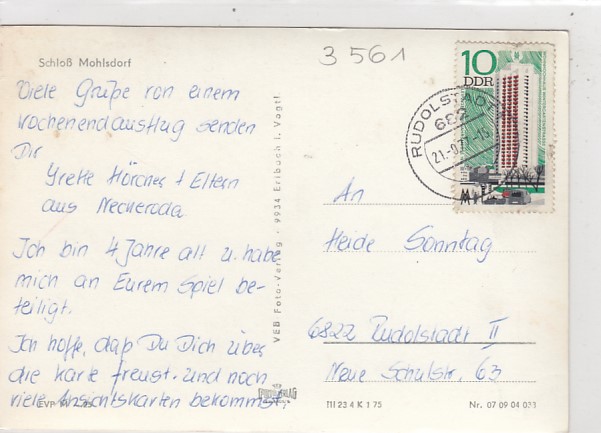 Schloß Mohlsdorf
3561
Viele Grüße von einem
Wochenendausflug senden
Dir
Grette Hörcher + Eltern
aus Neckeroda
Ich bin 4 Jahre alt u. habe
mich an Eurem Spiel be-
teiligt.
Ich hoffe, daß Du Dich über
die Karte freust. Und noch
viele Ansichtskarten bekommst.
VEB Foto-Verlag · 9934 Erlbach i. Vogtl
10
DDR
RUDOLSTADT
682
An
Heide Sonntag
6822 Rudolstadt II
Neue Schulstr. 63
III 23 4 K 1 75
Nr. 07 09 04 033